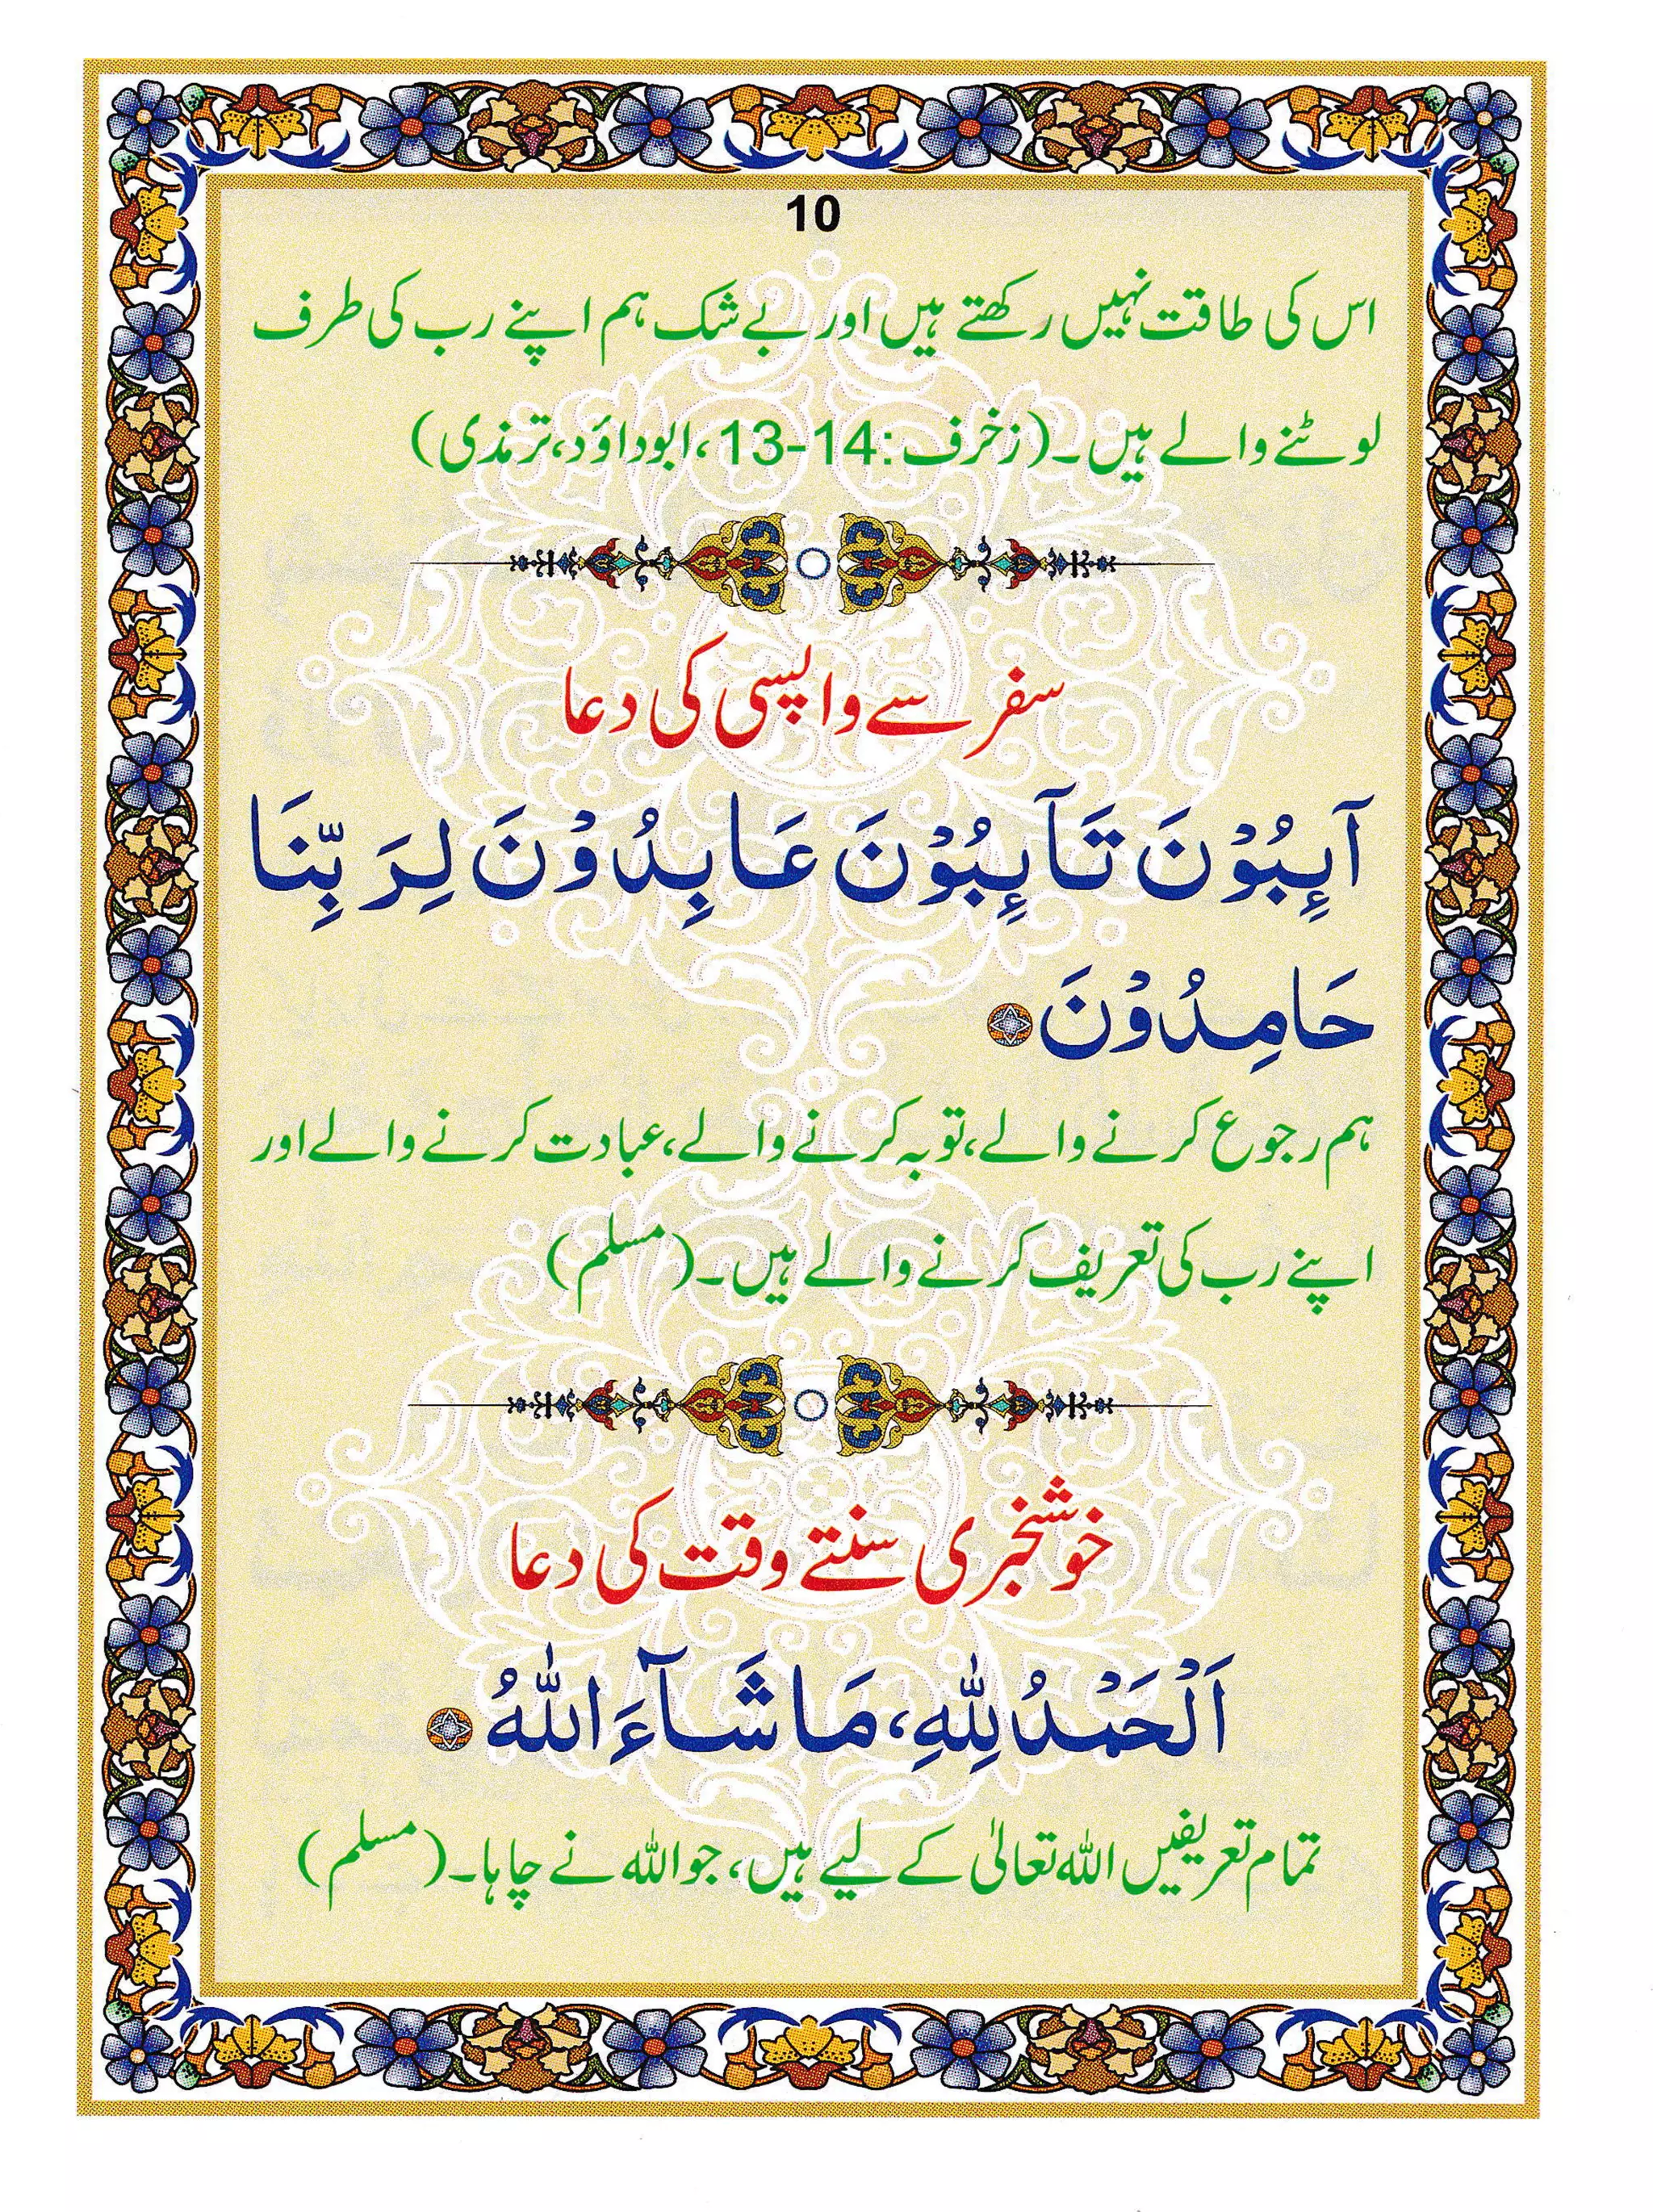 10
اس کی طاقت نہیں رکھتے ہیں اور بے شک ہم اپنے رب کی طرف
لوٹنے والے ہیں۔ (زخرف: 14-13، ابوداؤد، ترمذی)
سفر سے واپسی کی دعا
آئِبُوْنَ تَآئِبُوْنَ عَابِدُوْنَ لِرَبِّنَا
حَامِدُوْنَ
ہم رجوع کرنے والے، توبہ کرنے والے، عبادت کرنے والے اور
اپنے رب کی تعریف کرنے والے ہیں۔ (مسلم)
خوشخبری سنتے وقت کی دعا
اَلْحَمْدُ لِلّٰهِ، مَا شَآءَ اللّٰهُ
تمام تعریفیں اللہ تعالیٰ کے لیے ہیں، جو اللہ نے چاہا۔ (مسلم)